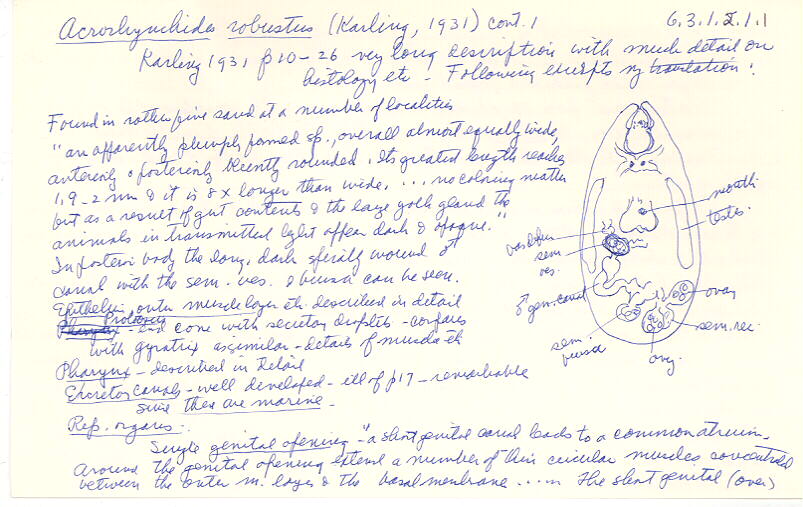 Acrorhynchides robustus (Karling, 1931) cont. 1
6.3.1.2.1.1
Karling 1931 p 10-26 very long description with much detail on
histology etc - Following excerpts my translation:
Found in rather fine sand at a number of localities
"an apparently plump formed sp., overall almost equally wide,
anteriorly & posteriorly bluntly rounded. Its greatest length reaches
1.9-2 mm & it is 8x longer than wide. ... no coloring matter
but as a result of gut contents & the large yolk gland the
animals in transmitted light appear dark & opaque."
In posterior body the long, dark spirally wound ♂
canal with the sem. ves. & bursa can be seen.
Epithelium, outer muscle layer etc described in detail
Pharynx Proboscis - end cone with secretory droplets - compares
with gyratrix as similar - details of muscles etc
Pharynx - described in detail
Excretory canals - well developed - ill of p17 - remarkable
since these are marine -
Rep. organs:
Single genital opening - "a short genital canal leads to a common atrium.
Around the genital opening extend a number of thin circular muscles concentrated
between the outer m. layer & the basal membrane ..... The short genital (over)
mouth
testis
vas def
sem
ves.
♂ gen. canal
ovary
sem. rec.
sem.
bursa
ovy.